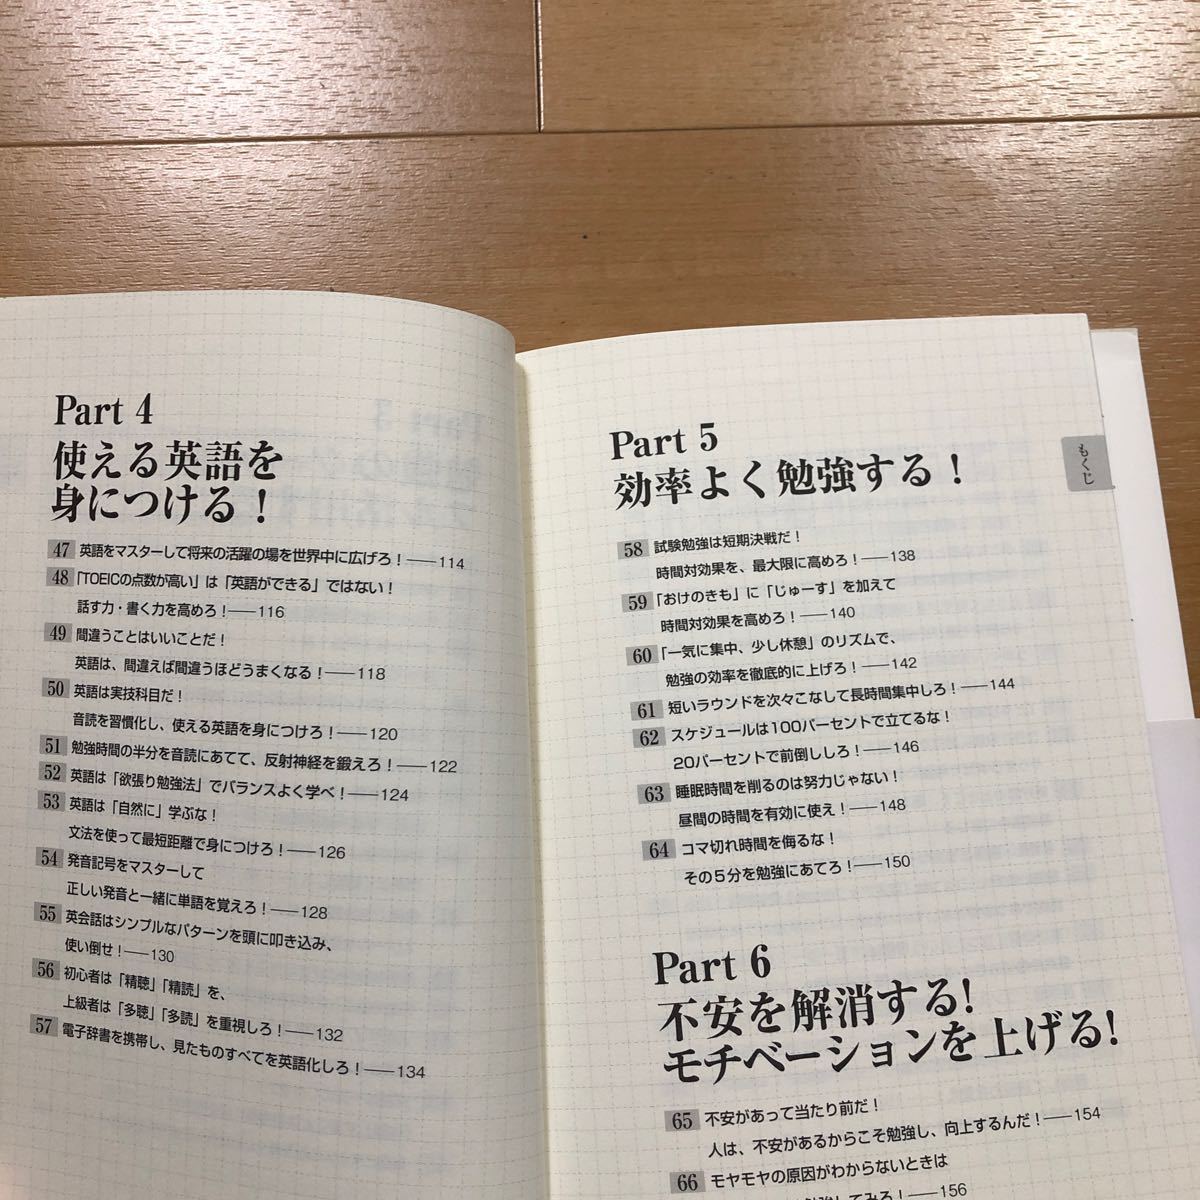 Part 4
使える英語を
身につける！
47 英語をマスターして将来の活躍の場を世界中に広げろ！——114
48 「TOEICの点数が高い」は「英語ができる」ではない！
話す力・書く力を高めろ！——116
49 間違うことはいいことだ！
英語は、間違えば間違うほどうまくなる！——118
50 英語は実技科目だ！
音読を習慣化し、使える英語を身につけろ！——120
51 勉強時間の半分を音読にあてて、反射神経を鍛えろ！——122
52 英語は「欲張り勉強法」でバランスよく学べ！——124
53 英語は「自然に」学ぶな！
文法を使って最短距離で身につけろ！——126
54 発音記号をマスターして
正しい発音と一緒に単語を覚えろ！——128
55 英会話はシンプルなパターンを頭に叩き込み、
使い倒せ！——130
56 初心者は「精聴」「精読」を、
上級者は「多聴」「多読」を重視しろ！——132
57 電子辞書を携帯し、見たものすべてを英語化しろ！——134
もくじ
Part 5
効率よく勉強する！
58 試験勉強は短期決戦だ！
時間対効果を、最大限に高めろ！——138
59 「おけのきも」に「じゅーす」を加えて
時間対効果を高めろ！——140
60 「一気に集中、少し休憩」のリズムで、
勉強の効率を徹底的に上げろ！——142
61 短いラウンドを次々こなして長時間集中しろ！——144
62 スケジュールは100パーセントで立てるな！
20パーセントで前倒ししろ！——146
63 睡眠時間を削るのは努力じゃない！
昼間の時間を有効に使え！——148
64 コマ切れ時間を侮るな！
その5分を勉強にあてろ！——150
Part 6
不安を解消する!
モチベーションを上げる!
65 不安があって当たり前だ！
人は、不安があるからこそ勉強し、向上するんだ！——154
66 モヤモヤの原因がわからないときは
勉強してみろ！——156